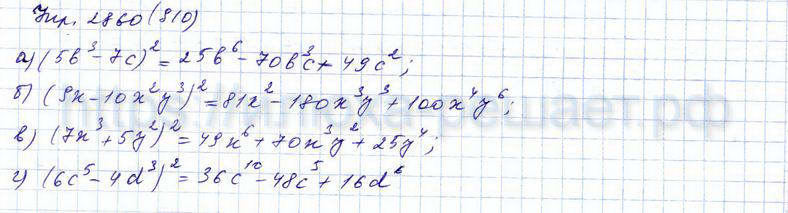 Упр. 2860 (910)
а) (5b³ - 7c)² = 25b⁶ - 70b³c + 49c²;
б) (9x - 10x²y³)² = 81x² - 180x³y³ + 100x⁴y⁶;
в) (7x³ + 5y²)² = 49x⁶ + 70x³y² + 25y⁴;
г) (6c⁵ - 4d³)² = 36c¹⁰ - 48c⁵ + 16d⁶